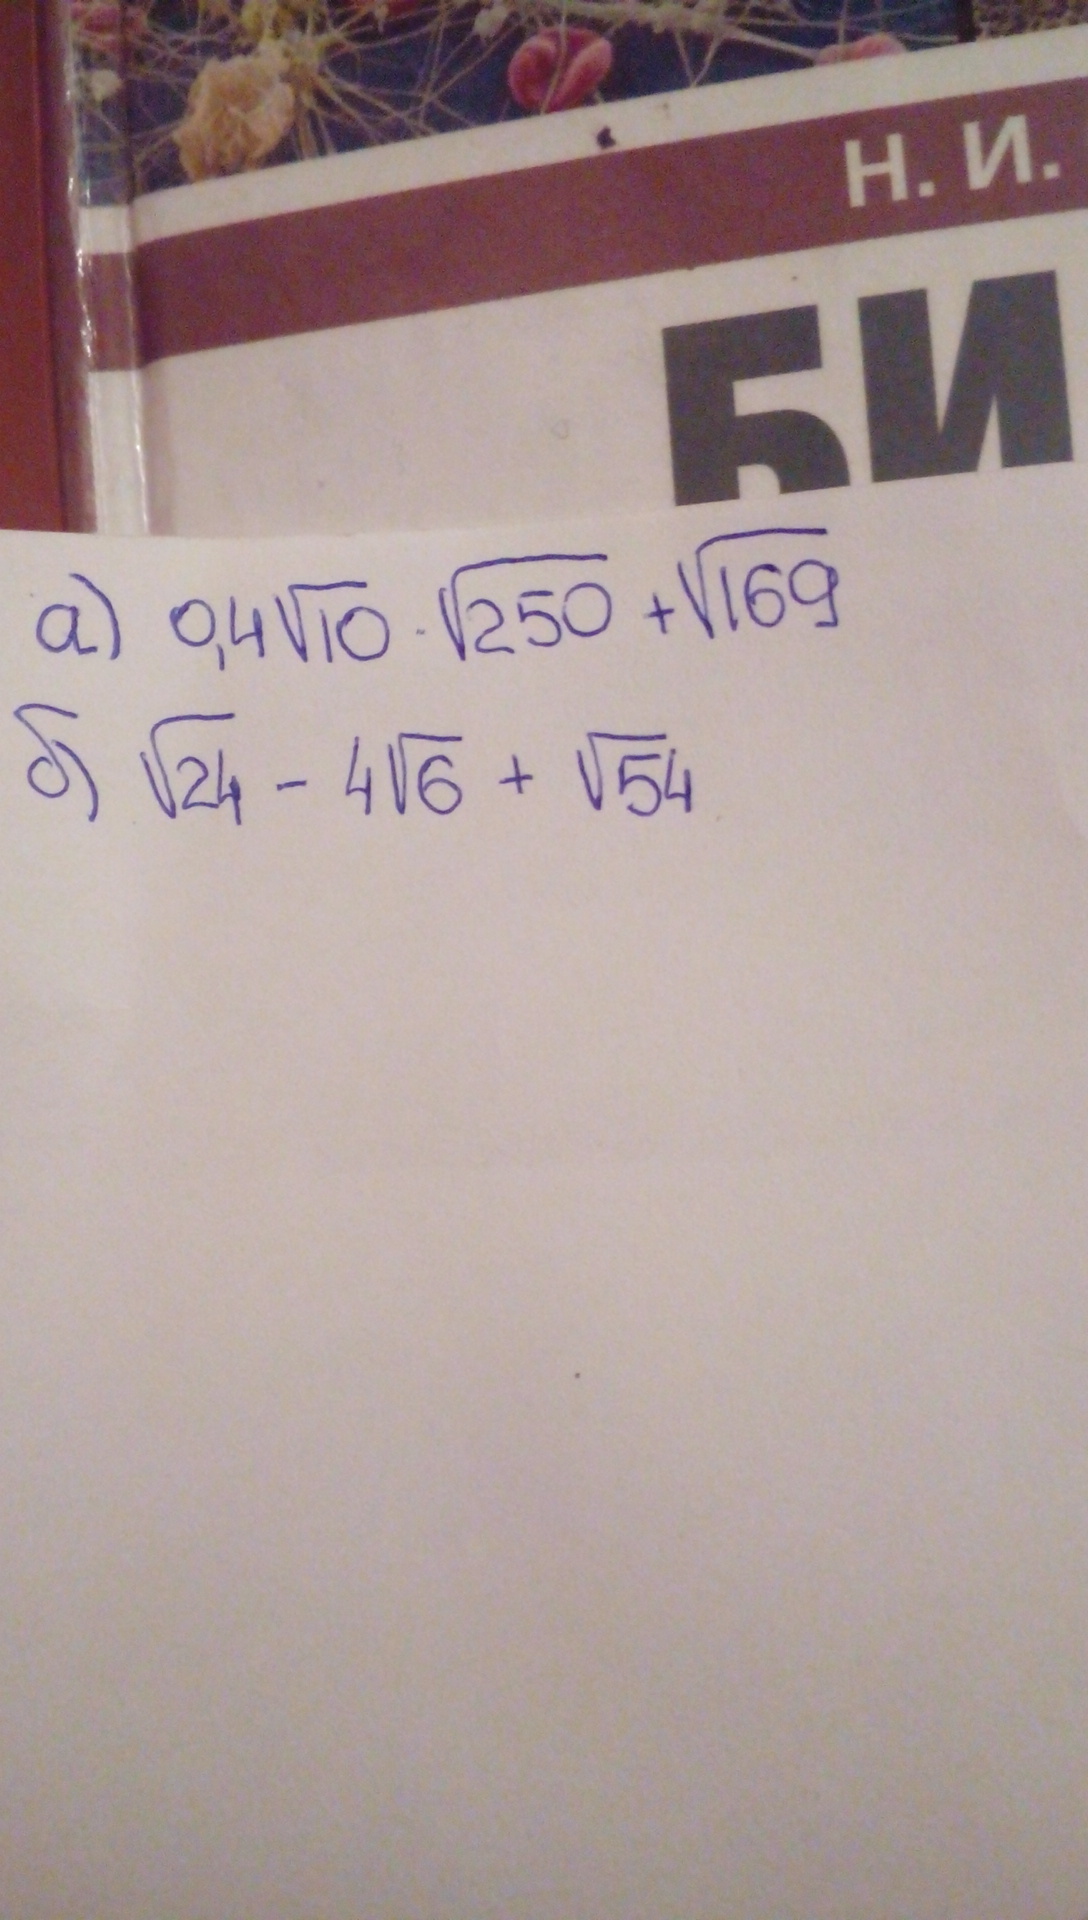 Н. И.
БИ
а) 0,4√10 · √250 + √169
б) √24 - 4√6 + √54